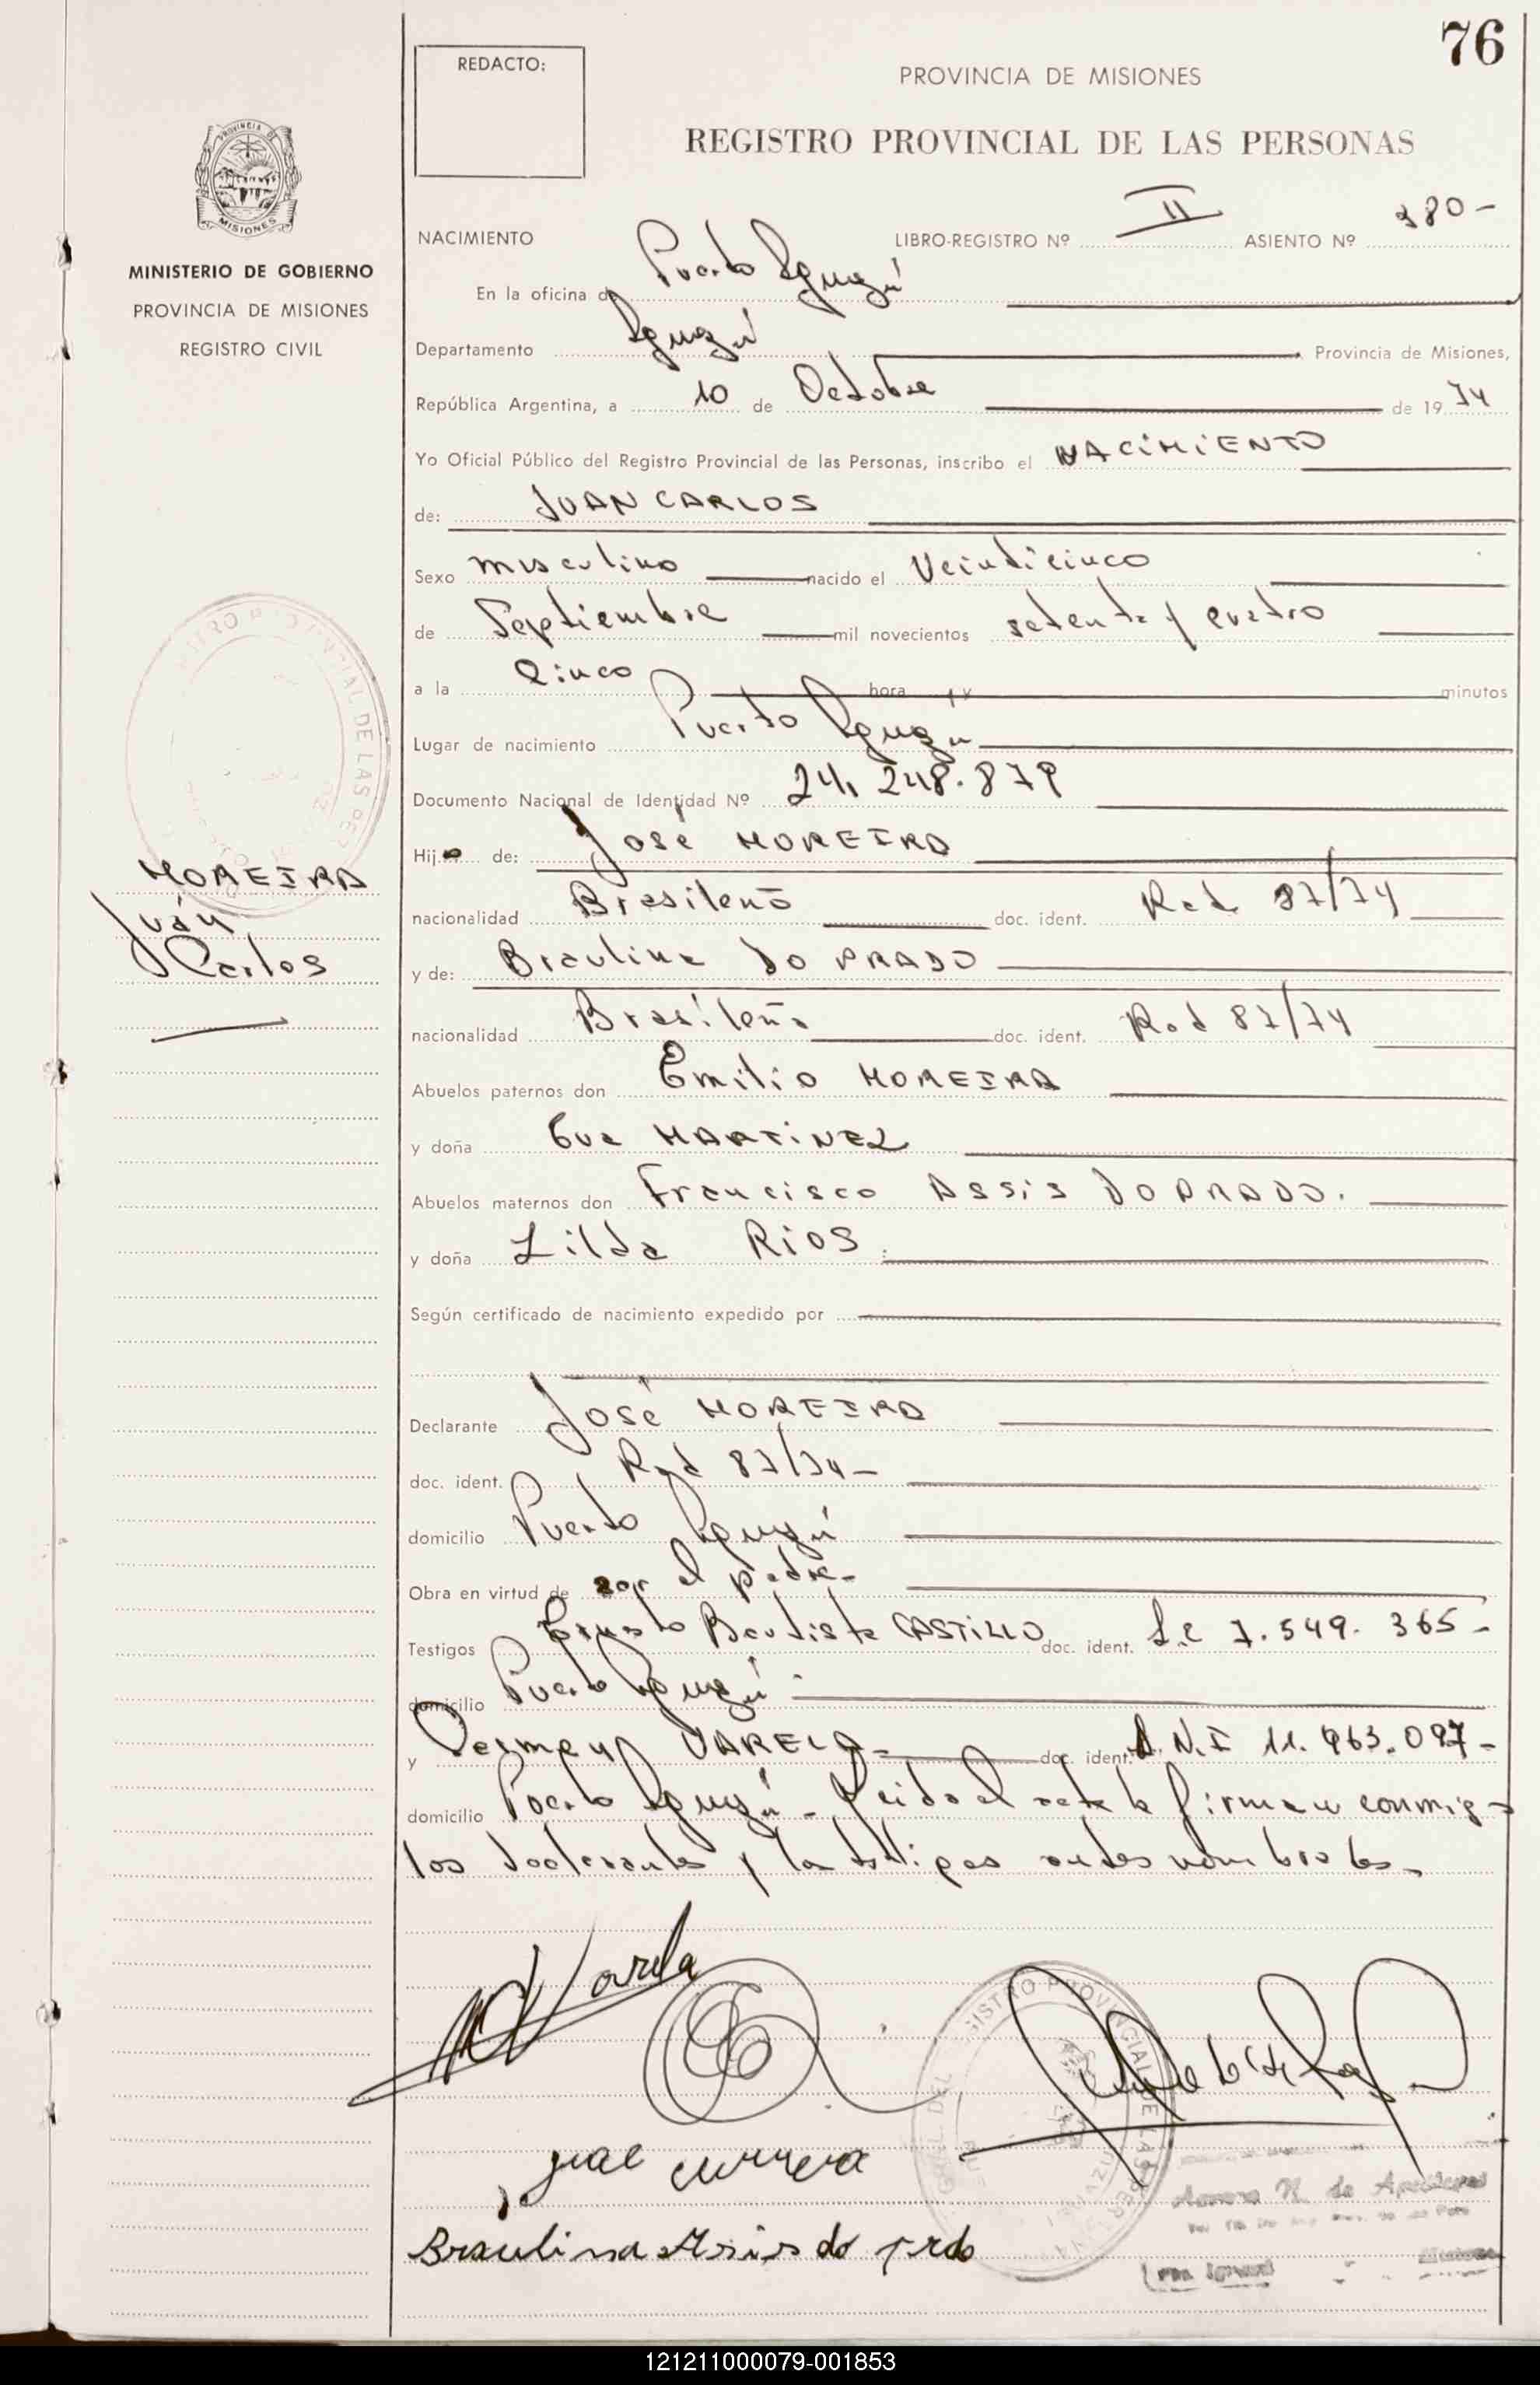 76
REDACTO:
PROVINCIA DE MISIONES
REGISTRO PROVINCIAL DE LAS PERSONAS
PROVINCIA DE
MISIONES
MINISTERIO DE GOBIERNO
PROVINCIA DE MISIONES
REGISTRO CIVIL
NACIMIENTO LIBRO-REGISTRO Nº II ASIENTO Nº 380-
En la oficina de Puerto Iguazú
Departamento Iguazú Provincia de Misiones,
República Argentina, a 10 de Octobre de 1974
Yo Oficial Público del Registro Provincial de las Personas, inscribo el NACIMIENTO
de: JUAN CARLOS
Sexo masculino nacido el Veinticinco
de Septiembre mil novecientos setenta y cuatro
a la Cinco hora minutos
Lugar de nacimiento Puerto Iguazú
Documento Nacional de Identidad Nº 24.248.879
Hijo de: José MOREIRA
MOREIRA
Juán
Carlos
nacionalidad Brasileño doc. ident. Rad 87/74
y de: Braulina DO PRADO
nacionalidad Brasileña doc. ident. Rad 87/74
Abuelos paternos don Emilio MOREIRA
y doña Eva MARTINEZ
Abuelos maternos don Francisco ASSIS DO PRADO.
y doña Lilda RIOS
Según certificado de nacimiento expedido por
Declarante José MOREIRA
doc. ident. Rad 87/74-
domicilio Puerto Iguazú
Obra en virtud de ser el padre-
Testigos Ernesto Bautista CASTILLO doc. ident. L.E 7.549.365-
domicilio Puerto Iguazú-
y VARELA- doc. ident. D.N.I 11.963.097-
domicilio Puerto Iguazú- Leida el acta la firman conmigo
los declarantes y los testigos antes nombrados-
Varela
Braulina Asis do prdo
121211000079-001853